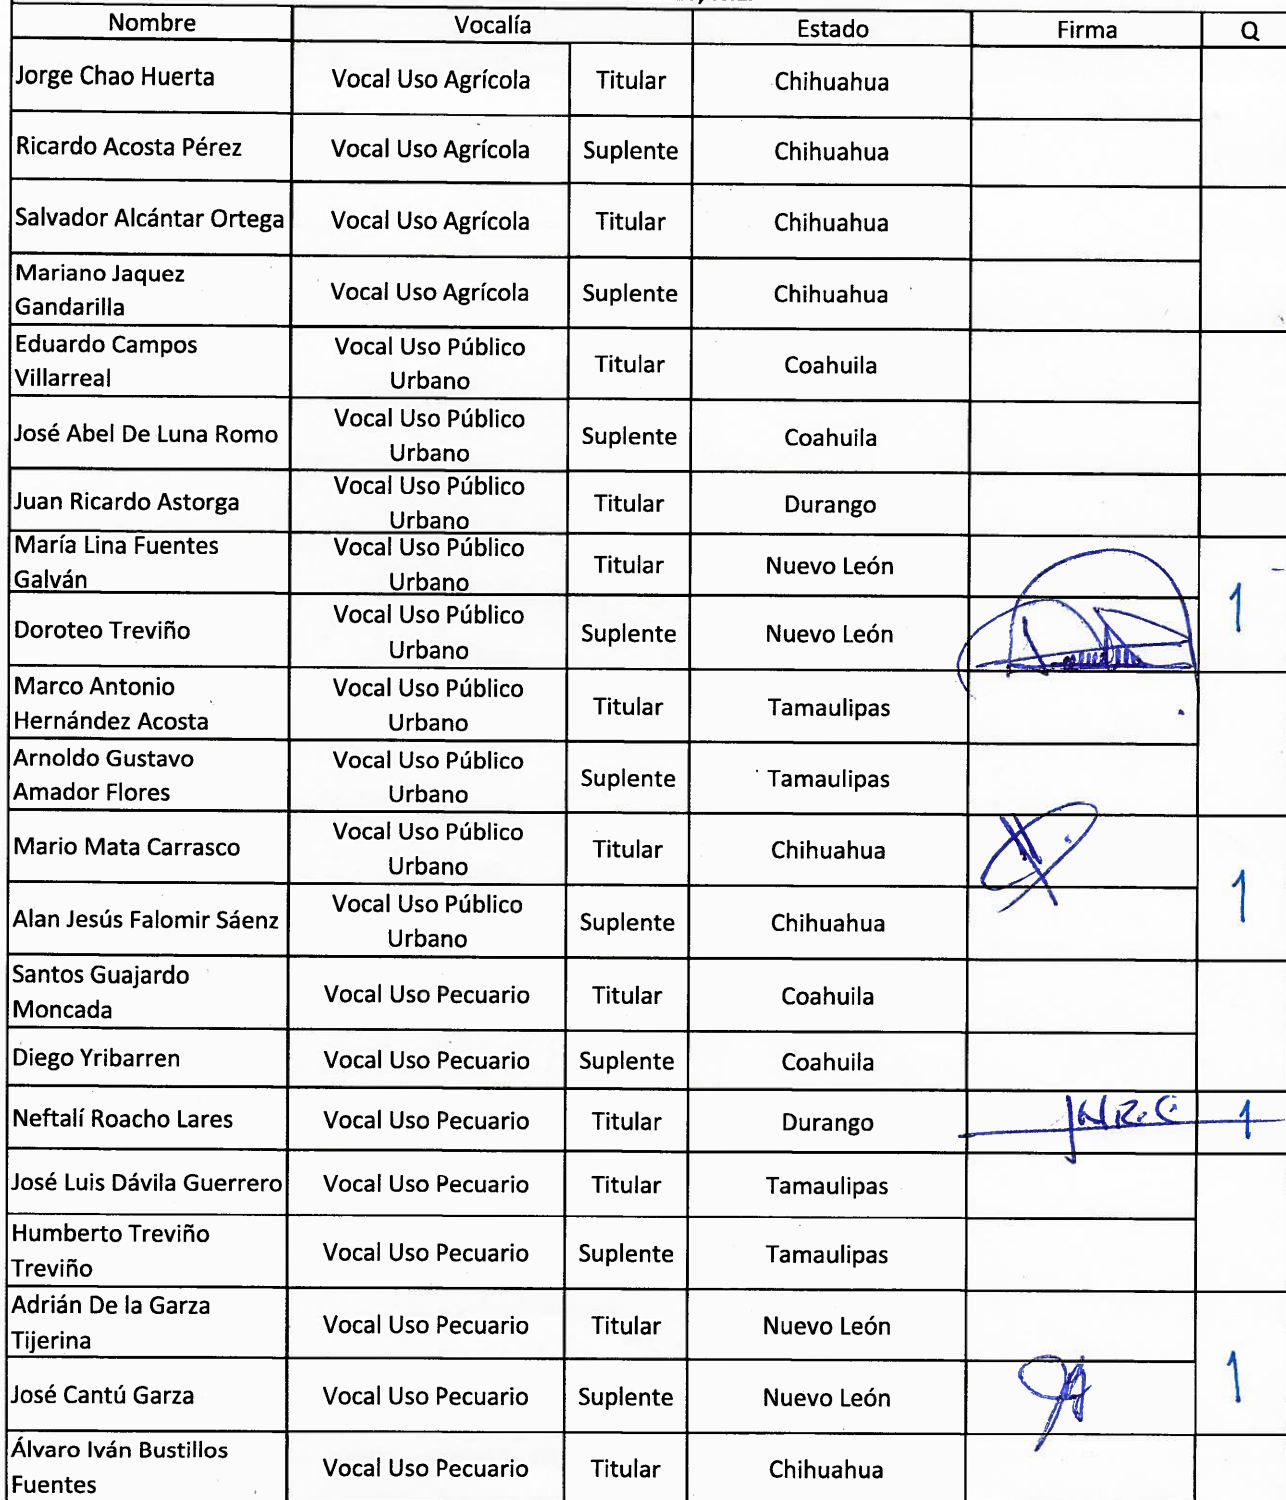 Nombre Vocalía Estado Firma Q
Jorge Chao Huerta Vocal Uso Agrícola Titular Chihuahua
Ricardo Acosta Pérez Vocal Uso Agrícola Suplente Chihuahua
Salvador Alcántar Ortega Vocal Uso Agrícola Titular Chihuahua
Mariano Jaquez
Gandarilla Vocal Uso Agrícola Suplente Chihuahua
Eduardo Campos
Villarreal Vocal Uso Público
Urbano Titular Coahuila
José Abel De Luna Romo Vocal Uso Público
Urbano Suplente Coahuila
Juan Ricardo Astorga Vocal Uso Público
Urbano Titular Durango
María Lina Fuentes
Galván Vocal Uso Público
Urbano Titular Nuevo León
1
Doroteo Treviño Vocal Uso Público
Urbano Suplente Nuevo León
Marco Antonio
Hernández Acosta Vocal Uso Público
Urbano Titular Tamaulipas
Arnoldo Gustavo
Amador Flores Vocal Uso Público
Urbano Suplente Tamaulipas
Mario Mata Carrasco Vocal Uso Público
Urbano Titular Chihuahua
1
Alan Jesús Falomir Sáenz Vocal Uso Público
Urbano Suplente Chihuahua
Santos Guajardo
Moncada Vocal Uso Pecuario Titular Coahuila
Diego Yribarren Vocal Uso Pecuario Suplente Coahuila
Neftalí Roacho Lares Vocal Uso Pecuario Titular Durango 1
José Luis Dávila Guerrero Vocal Uso Pecuario Titular Tamaulipas
Humberto Treviño
Treviño Vocal Uso Pecuario Suplente Tamaulipas
Adrián De la Garza
Tijerina Vocal Uso Pecuario Titular Nuevo León
1
José Cantú Garza Vocal Uso Pecuario Suplente Nuevo León
Álvaro Iván Bustillos
Fuentes Vocal Uso Pecuario Titular Chihuahua